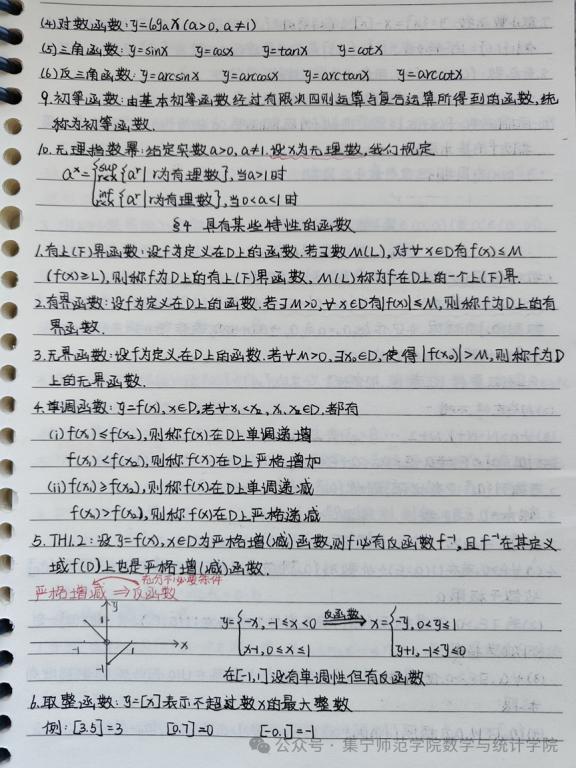 (4)对数函数: y=logₐx (a>0, a≠1)
(5)三角函数: y=sinx y=cosx y=tanx y=cotx
(6)反三角函数: y=arcsinx y=arccosx y=arctanx y=arccotx
9.初等函数:由基本初等函数经过有限次四则运算与复合运算所得到的函数,统
称为初等函数.
10.无理指数幂:给定实数a>0,a≠1.设x为无理数,我们规定
aˣ={sup r<x {aʳ|r为有理数},当a>1时
{inf r<x {aʳ|r为有理数},当0<a<1时
§4 具有某些特性的函数
1.有上(下)界函数:设f为定义在D上的函数.若∃数M(L),对∀x∈D有f(x)≤M
(f(x)≥L),则称f为D上的有上(下)界函数, M(L)称为f在D上的一个上(下)界.
2.有界函数:设f为定义在D上的函数.若∃M>0,∀x∈D有|f(x)|≤M,则称f为D上的有
界函数.
3.无界函数:设f为定义在D上的函数.若∀M>0,∃x₀∈D,使得|f(x₀)|>M,则称f为D
上的无界函数.
4.单调函数: y=f(x), x∈D,若∀x₁<x₂, x₁,x₂∈D.都有
(i)f(x₁)≤f(x₂),则称f(x)在D上单调递增
f(x₁)<f(x₂),则称f(x)在D上严格增加
(ii)f(x₁)≥f(x₂),则称f(x)在D上单调递减
f(x₁)>f(x₂),则称f(x)在D上严格递减
5. TH1.2:设y=f(x), x∈D为严格增(减)函数,则f必有反函数f⁻¹,且f⁻¹在其定义
域f(D)上也是严格增(减)函数.
充分不必要条件
严格增减⇒反函数
y
1
-1 1 x
-1
y={-x, -1≤x<0 反函数 x={-y, 0<y≤1
{x-1, 0≤x≤1 {y+1, -1≤y≤0
在[-1,1]没有单调性但有反函数
6.取整函数: y=[x]表示不超过数x的最大整数
例: [3.5]=3 [0.7]=0 [-0.1]=-1
公众号·集宁师范学院数学与统计学院